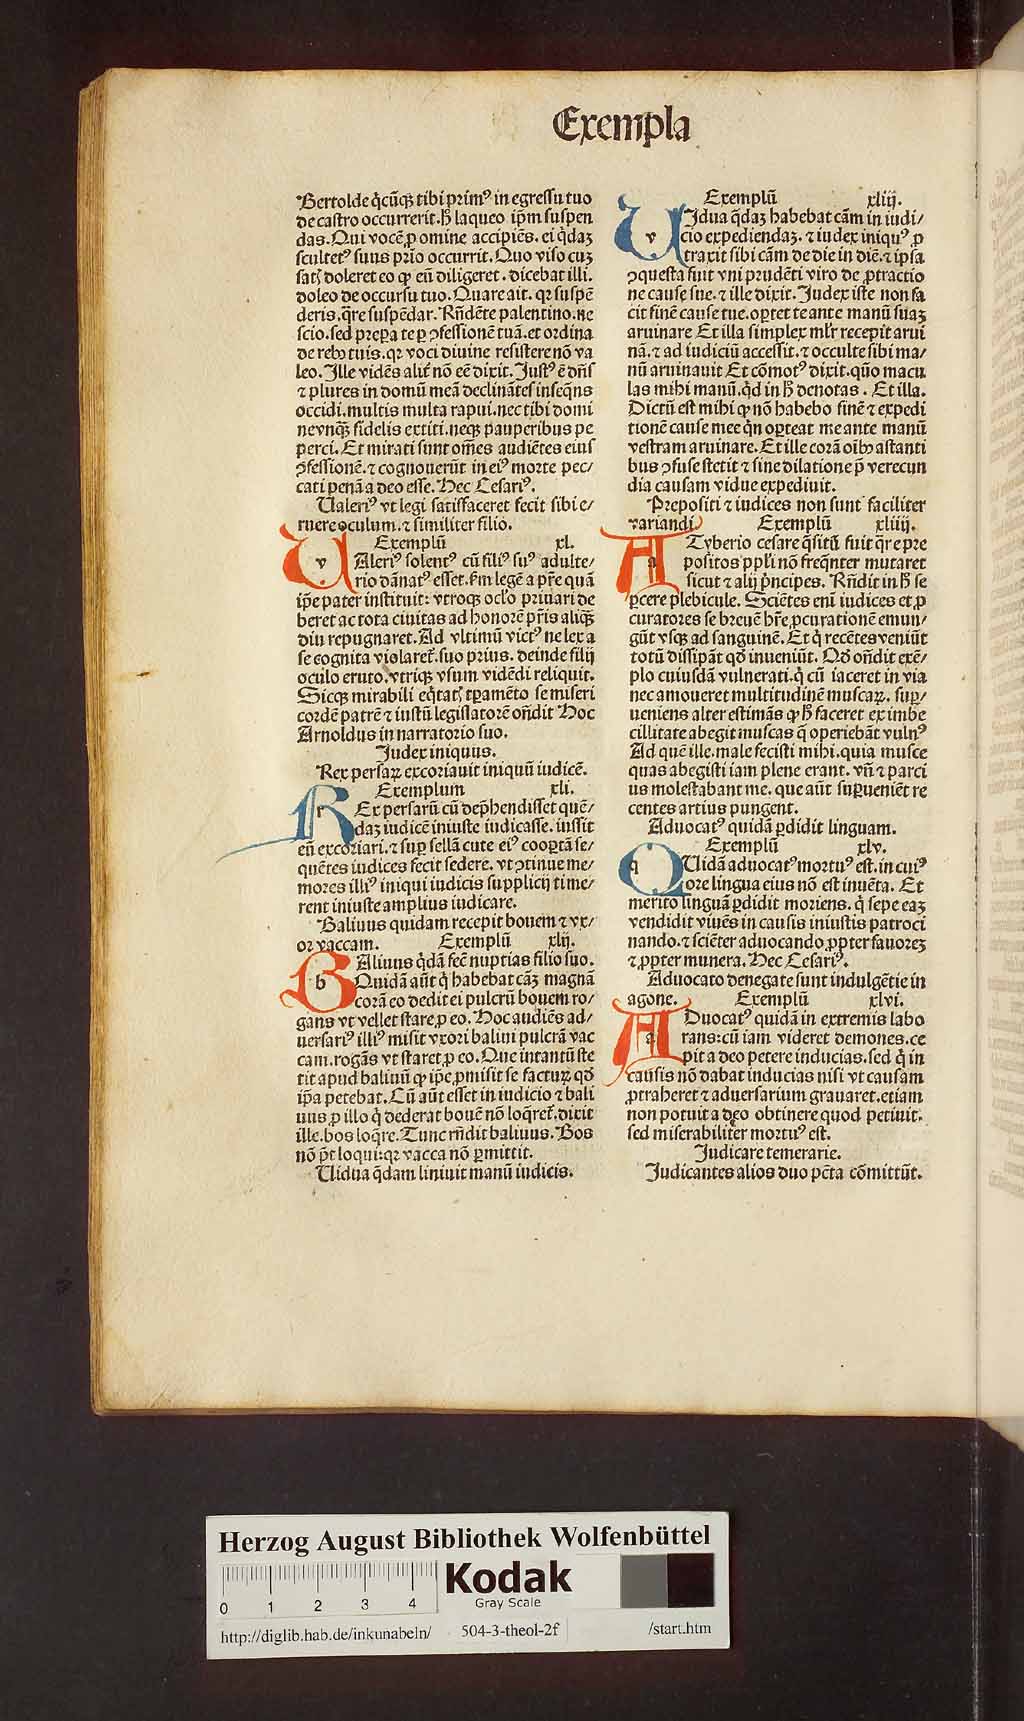 Exempla
Bertolde q̇cūqꝫ tibi primꝰ in egressu tuo
de castro occurrerit. hͦ laqueo ip̄m suspen
das. Qui vocē ꝓ omine accipiēs. ei q̄daꝫ
scultetꝰ suus p̄rio occurrit. Quo viso cuꝫ
satꝭ doleret eo ꝙ eū diligeret. dicebat illi.
doleo de occursu tuo. Quare ait. qꝛ suspē
deris. q̄re suspēdar. Rn̄dēte palentino. ne
scio. sed prepa te ꝑ ꝯfessionē tuā. et ordina
de rebꝰ tuis. qꝛ voci diuine resistere nō va
leo. Ille vidēs alit̄ nō eē dixit. Justꝰ ē dn̄s
⁊ plures in domū meā declinātes inseq̄ns
occidi. multis multa rapui. nec tibi domi
ne vnqꝫ fidelis extiti. neqꝫ pauperibus pe
perci. Et mirati sunt om̄es audiētes eius
ꝯfessionē. ⁊ cognouerūt in eiꝰ morte pec⸗
cati penā a deo esse. Hec Cesariꝰ.
Ualeriꝰ vt legi satisfaceret fecit sibi e⸗
rnere oculum. ⁊ similiter filio.
Exemplū xl.
v Aleriꝰ solentꝰ cū filiꝰ suꝰ adulte⸗
rio dānatꝰ esset. ẜm legē a pr̄e quā
ip̄e pater instituit: vtroqꝫ ocl̓o priuari de
beret ac tota ciuitas ad honorē pr̄is aliqꝫ
diu repugnaret. Ad vltimū victꝰ ne lex a
se cognita violaret᷑. suo prius. deinde filij
oculo eruto. vtriqꝫ vsum vidēdi reliquit.
Sicqꝫ mirabili eq̄tatꝭ tꝑamēto se miseri
cordē patrē ⁊ iustū legislatorē on̄dit Hoc
Arnoldus in narratorio suo.
Judex iniquus.
Rex persaꝝ excoriauit iniquū iudicē.
Exemplum xli.
r Ex persarū cū dep̄hendisset quē⸗
daꝫ iudicē iniuste iudicasse. iussit
eū excoriari. ⁊ suꝑ sellā cute eiꝰ cooꝑtā se⸗
quētes iudices fecit sedere. vt ꝯtinue me⸗
mores illiꝰ iniqui iudicis supplicij time⸗
rent iniuste amplius iudicare.
Baliuus quidam recepit bouem ⁊ vx⸗
or vaccam. Exemplū xlij.
b Aliuus q̄dā fec̄ nuptias filio suo.
Quidā aūt q̇ habebat cāꝫ magnā
corā eo dedit ei pulcrū bouem ro⸗
gans vt vellet stare ꝓ eo. Hoc audiēs ad⸗
uersariꝰ illiꝰ misit vxori baliui pulcrā vac
cam. rogās vt staret ꝓ eo. Que intantū ste
tit apud baliuū ꝙ ip̄e ꝓmisit se facturꝝ qd̄
ip̄a petebat. Cū aūt esset in iudicio ⁊ bali
uus ꝓ illo q̇ dederat bouē nō loq̄ret᷑. dixit
ille. bos loq̄re. Tunc rn̄dit baliuus. Bos
nō p̄t loqui: qꝛ vacca nō ꝑmittit.
Uidua q̄dam liniuit manū iudicis.
Exemplū xliij.
v Jdua q̄daꝫ habebat cām in iudi⸗
cio expediendaꝫ. ⁊ iudex iniquꝰ ꝓ
traxit sibi cām de die in diē. ⁊ ip̄sa
ꝯquesta fuit vni prudēti viro de ꝓtractio
ne cause sue. ⁊ ille dixit. Judex iste non fa
cit finē cause tue. oꝑtet te ante manū suaꝫ
aruinare Et illa simplex ml̓r recepit arui
nā. ⁊ ad iudiciū accessit. ⁊ occulte sibi ma⸗
nū aruinauit Et cōmotꝰ dixit. quō macu
las mihi manū. qd̓ in hͦ denotas. Et illa.
Dictū est mihi ꝙ nō habebo finē ⁊ expedi
tionē cause mee q̇n oꝑteat me ante manū
vestram aruinare. Et ille corā oībꝰ astanti
bus ꝯfuse stetit ⁊ sine dilatione p̄ verecun
dia causam vidue expediuit.
Prepositi ⁊ iudices non sunt faciliter
variandi Exemplū xliiij.
a Tyberio cesare q̄sitū fuit q̄re pre
positos ppl̓i nō freq̄nter mutaret
sicut ⁊ alij p̄ncipes. Rn̄dit in hͦ se
ꝑcere plebicule. Sciētes eni iudices et ꝓ
curatores se breuē hr̄e ꝓcurationē emun⸗
gūt vsqꝫ ad sanguinē. Et q̇ recētes veniūt
totū dissipāt qd̓ inueniūt. Qd̓ on̄dit exē⸗
plo cuiusdā vulnerati. q̇ cū iaceret in via
nec amoueret multitudinē muscaꝝ. suꝑ⸗
ueniens alter estimās ꝙ hͦ faceret ex imbe
cillitate abegit muscas q̄ operiebāt vulnꝰ
Ad quē ille. male fecisti mihi. quia musce
quas abegisti iam plene erant. vn̄ ⁊ parci
us molestabant me. que aūt suꝑueniēt re
centes artius pungent.
Aduocatꝰ quidā ꝑdidit linguam.
Exemplū xlv.
q Uidā aduocatꝰ mortuꝰ est. in cuiꝰ
ore lingua eius nō est inuēta. Et
merito linguā ꝑdidit moriens. q̇ sepe eaꝫ
vendidit viuēs in causis iniustis patroci
nando. ⁊ sciēter aduocando ꝓpter fauoreꝫ
⁊ ꝓpter munera. Hec Cesariꝰ.
Aduocato denegate sunt indulgētie in
agone. Exemplū xlvi.
a Duocatꝰ quidā in extremis labo
rans: cū iam videret demones. ce
pit a deo petere inducias. sed q̇ in
causis nō dabat inducias nisi vt causam
ꝓtraheret ⁊ aduersarium grauaret. etiam
non potuit a deo obtinere quod petiuit.
sed miserabiliter mortuꝰ est.
Judicare temerarie.
Judicantes alios duo pctā cōmittūt.
Herzog August Bibliothek Wolfenbüttel
0 1 2 3 4
Kodak
Gray Scale
http://diglib.hab.de/inkunabeln/ 504-3-theol-2f /start.htm